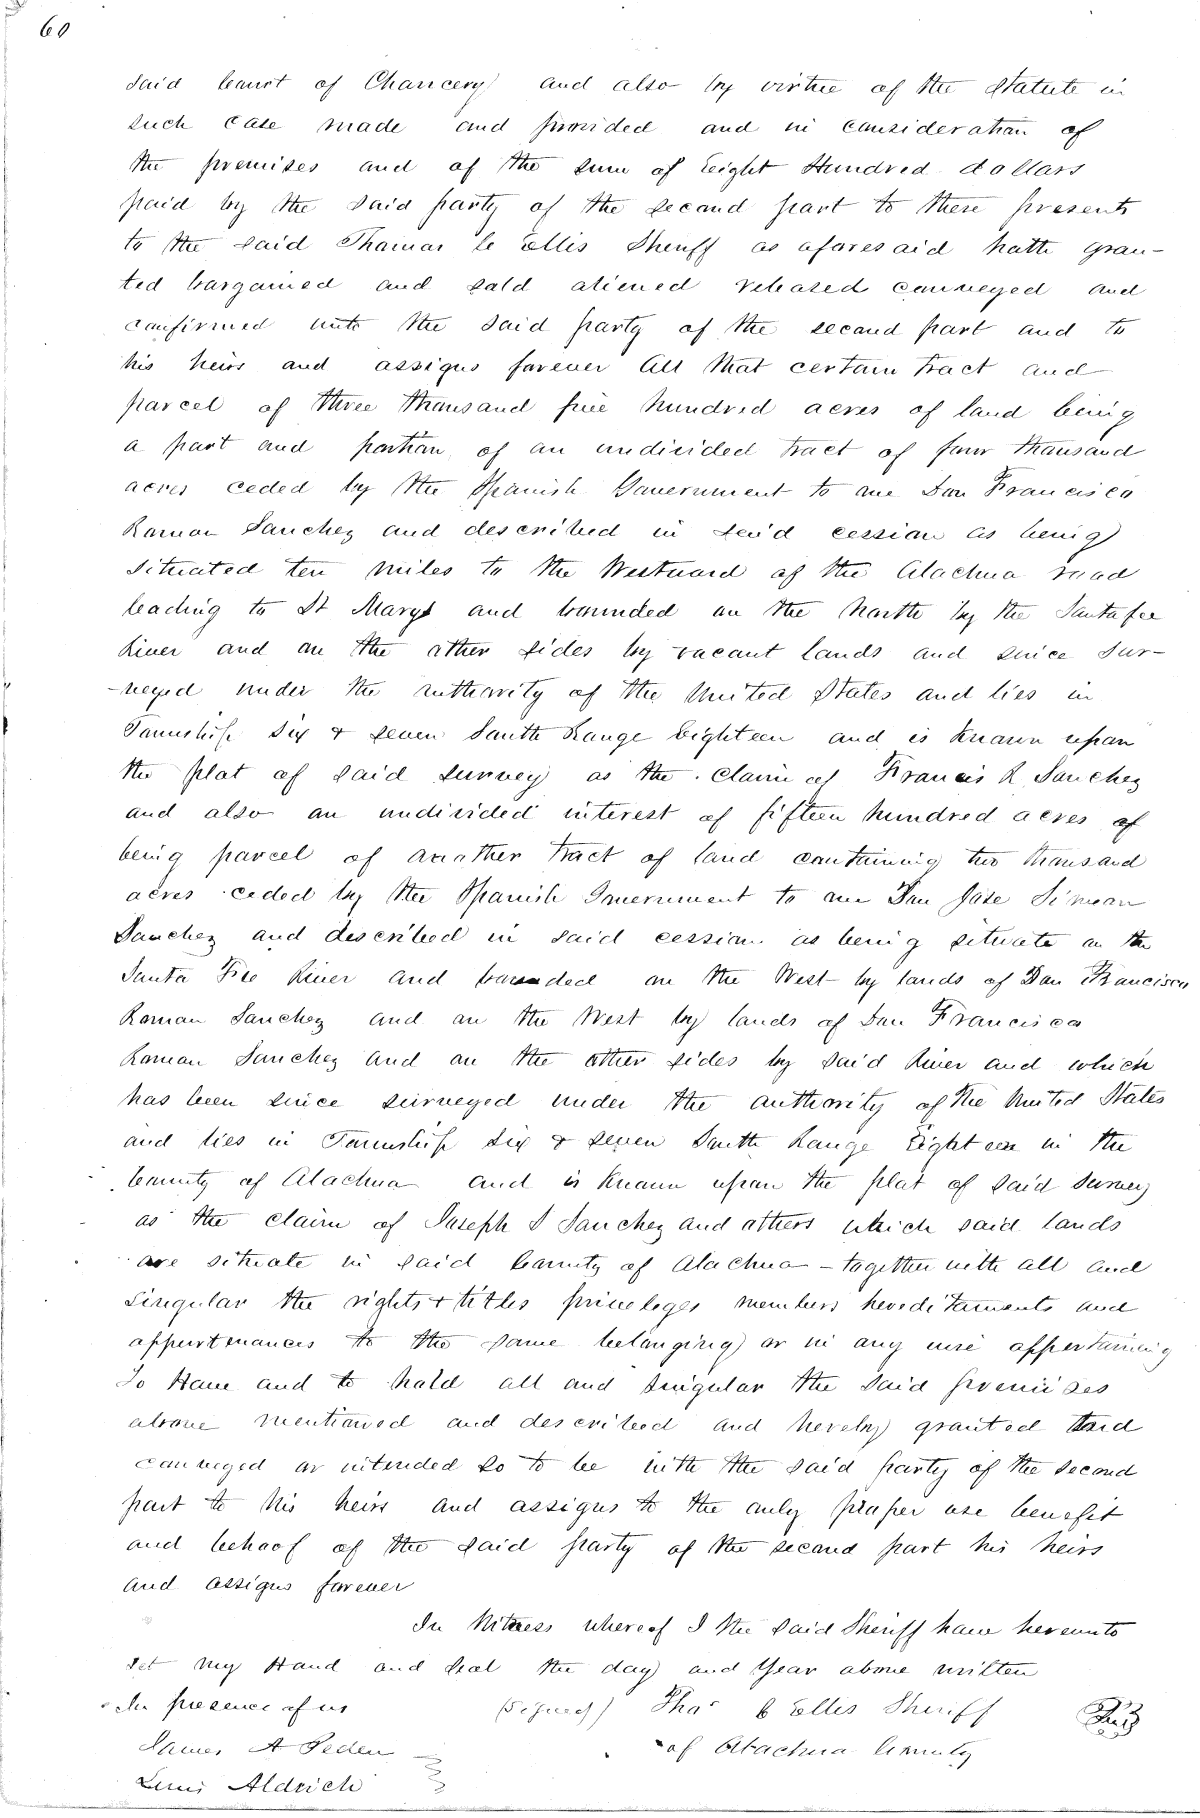 60
said Court of Chancery and also by virtue of the Statute in
such case made and provided and in consideration of
the premises and of the sum of Eight Hundred dollars
paid by the said party of the second part to these presents
to the said Thomas C Ellis Sheriff as aforesaid hath gran-
ted bargained and sold aliened released conveyed and
confirmed unto the said party of the second part and to
his heirs and assigns forever All that certain tract and
parcel of three thousand five hundred acres of land being
a part and portion of an undivided tract of four thousand
acres ceded by the Spanish Government to one Don Francisco
Roman Sanchez and described in said cession as being
situated ten miles to the Westward of the Alachua road
leading to St Marys and bounded on the North by the Santa fee
River and on the other sides by vacant lands and since sur-
-veyed under the authority of the United States and lies in
Township six & seven South Range Eighteen and is known upon
the plat of said survey as the claim of Francis R Sanchez
and also an undivided interest of fifteen hundred acres of
being parcel of another tract of land containing two thousand
acres ceded by the Spanish Government to one Don Jose Simeon
Sanchez and described in said cession as being situate on the
Santa Fee River and bounded on the West by lands of Don Francisco
Roman Sanchez and on the West by lands of Don Francisco
Roman Sanchez and on the other sides by said River and which
has been since surveyed under the authority of the United States
and lies in Township six & seven South Range Eighteen in the
County of Alachua and is known upon the plat of said survey
as the claim of Joseph S Sanchez and others which said lands
are situate in said County of Alachua - together with all and
singular the rights & titles priveleges members hereditaments and
appurtenances to the same belonging or in any wise appertaining
To Have and to hold all and singular the said premises
above mentioned and described and hereby granted and
conveyed or intended so to be with the said party of the second
part to his heirs and assigns to the only proper use benefit
and behoof of the said party of the second part his heirs
and assigns forever
In Witness whereof I the said Sheriff have hereunto
set my Hand and Seal the day and Year above written
In presence of us (signed) Thos C Ellis Sheriff
James A Peden of Alachua County
Lewis Aldrich